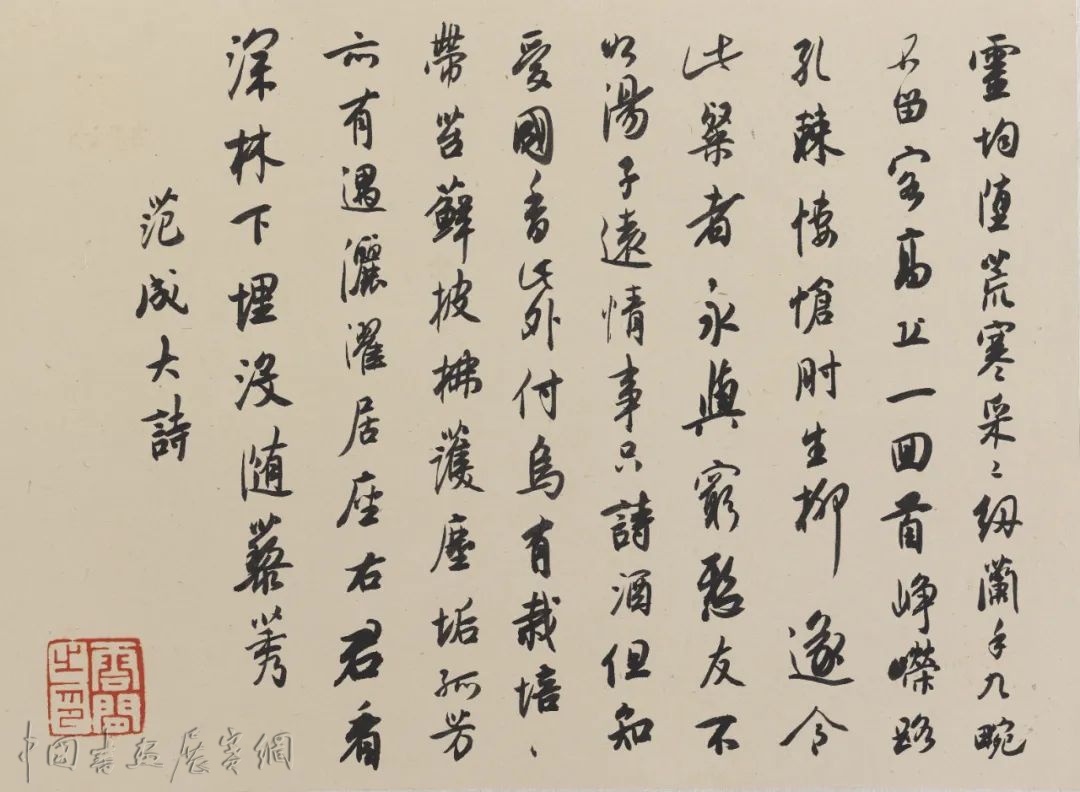 靈均堕荒寒采〻紉蘭手九畹
不留客高丘一回首崢嶸路
孔棘悽愴肘生柳遂令
此粲者永與窮愁友不
如湯子遠情事只詩酒但知
愛國香此外付烏有栽培
帶苔蘚披拂護塵垢孤芳
亦有遇灑濯居座右君看
深林下埋没随藜莠
范成大詩
中國書畫展賽網